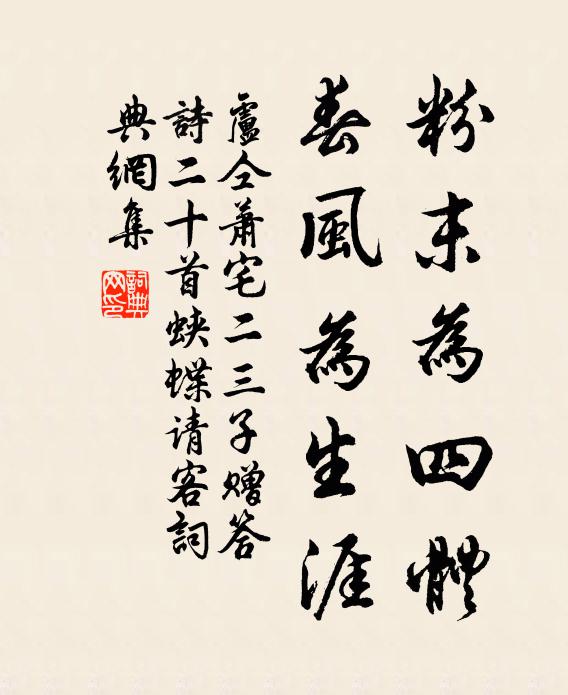 粉末為四體
春風為生涯
盧仝蕭宅二三子贈答
詩二十首蛺蝶请客詞
典網集
詞典网印